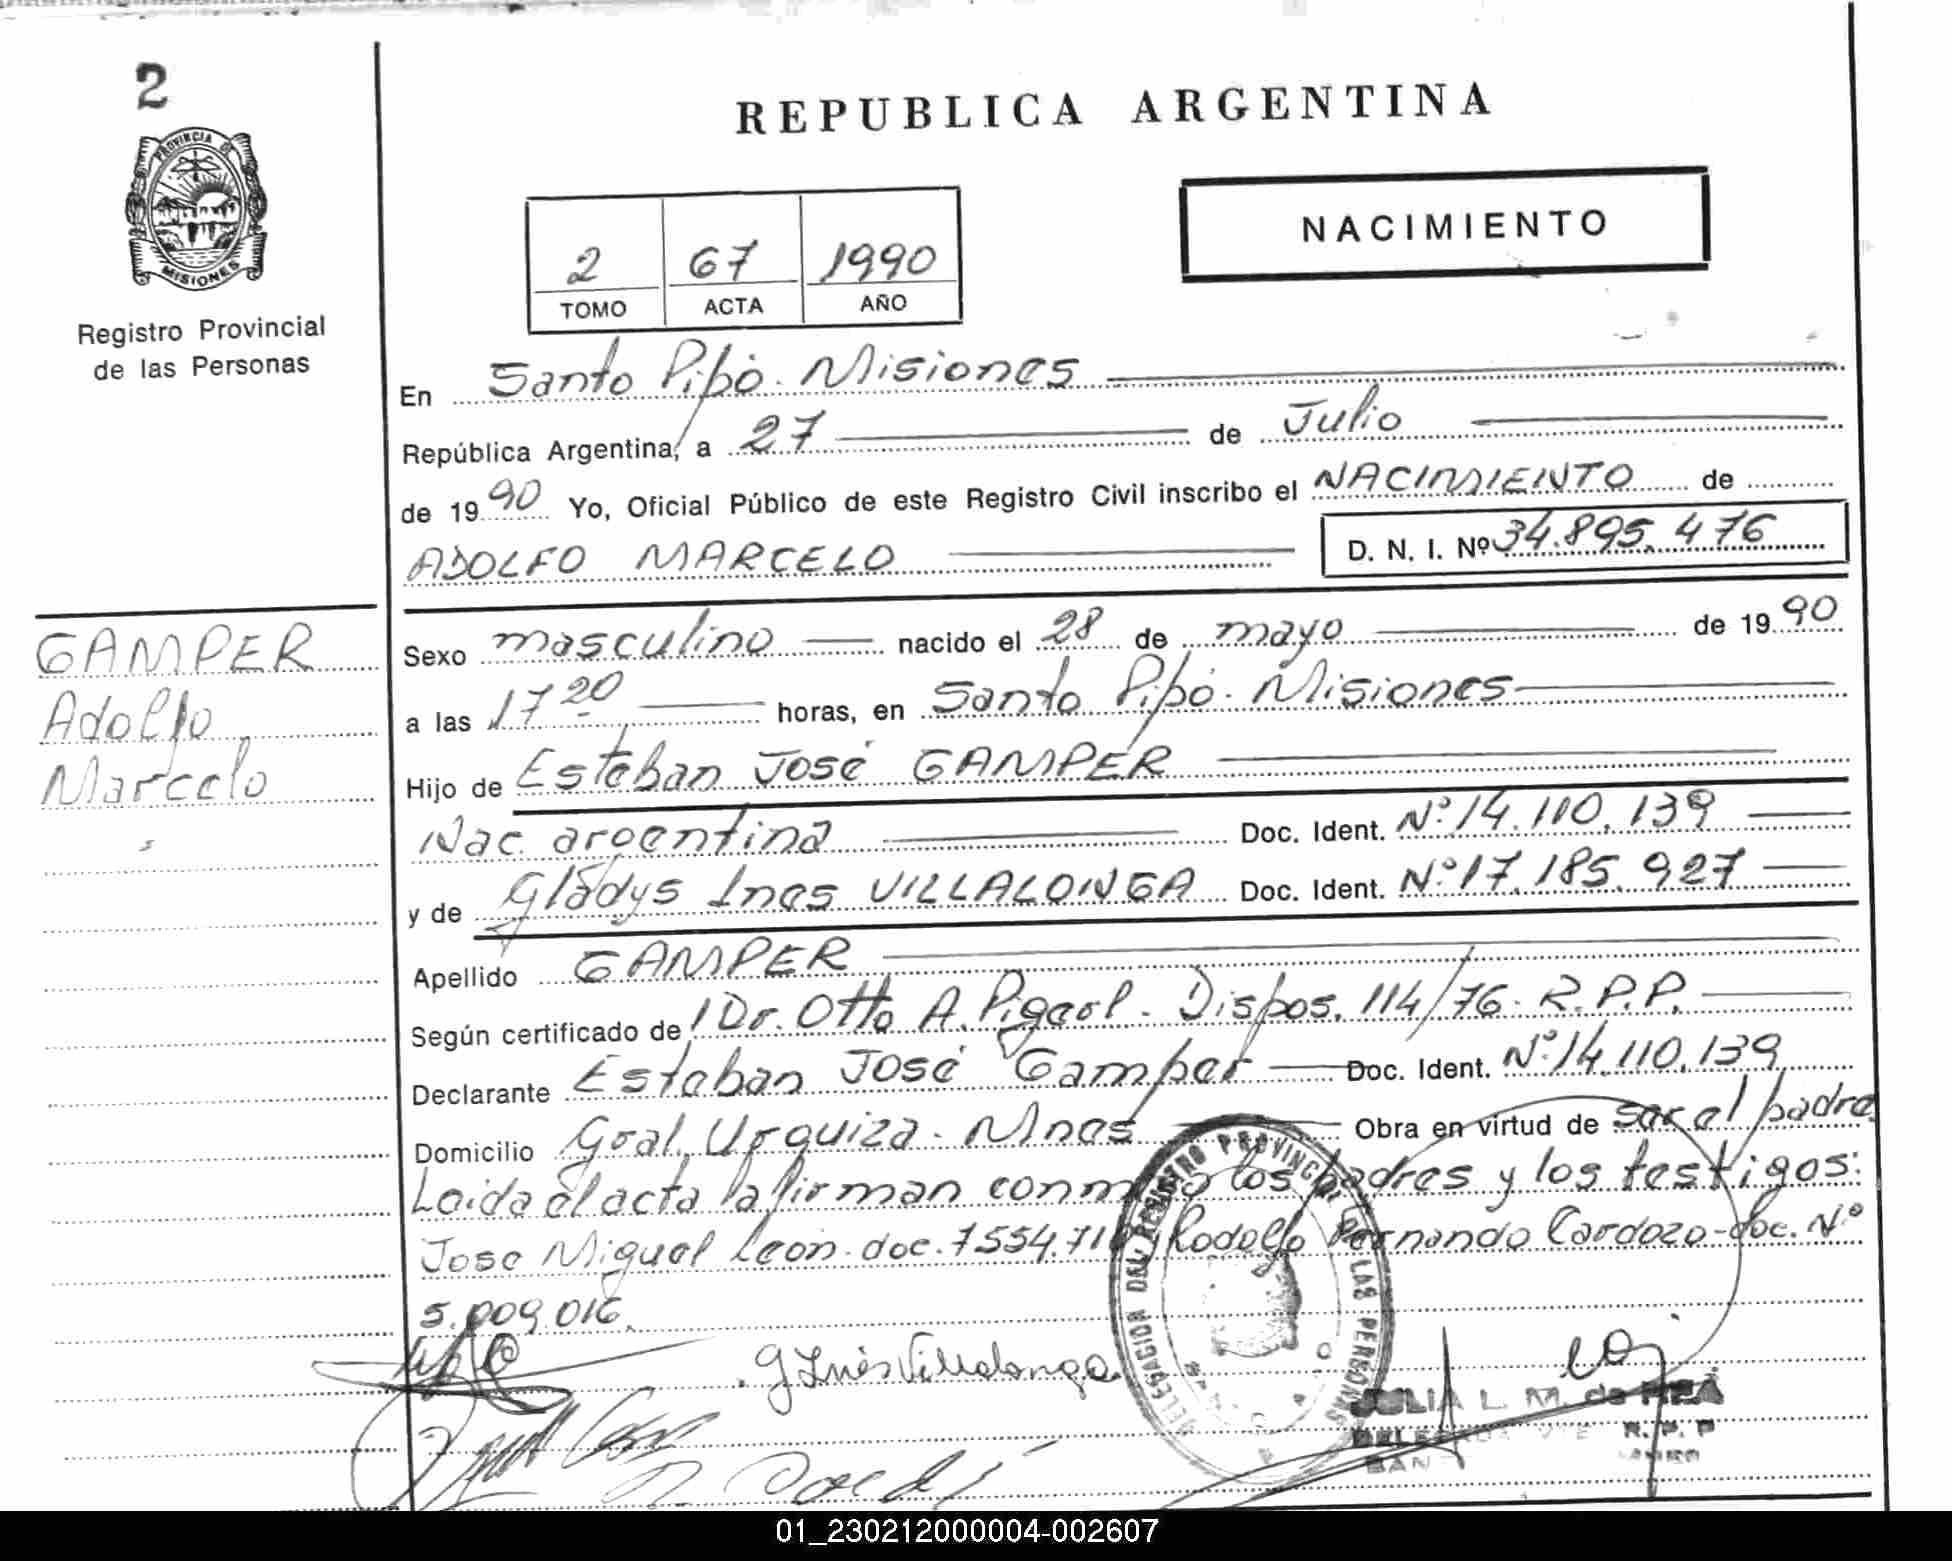 2
PROVINCIA DE
MISIONES
Registro Provincial
de las Personas
REPUBLICA ARGENTINA
NACIMIENTO
2 67 1990
TOMO ACTA AÑO
En Santo Pipó. Misiones
República Argentina, a 27 de Julio
de 1990 Yo, Oficial Público de este Registro Civil inscribo el NACIMIENTO de
ADOLFO MARCELO D. N. I. Nº 34.895.476
GAMPER
Adolfo
Marcelo
Sexo masculino nacido el 28 de mayo de 1990
a las 17 20 horas, en Santo Pipó. Misiones
Hijo de Esteban José GAMPER
Nac. argentina Doc. Ident. Nº 14.110.139
y de Gladys Ines VILLALONGA Doc. Ident. Nº 17.185.927
Apellido GAMPER
Según certificado de Dr. Otto A. Dispos. 114/76. R.P.P.
Declarante Esteban José Gamper Doc. Ident. Nº 14.110.139
Domicilio Gral. Urquiza. Mnes Obra en virtud de ser el padre
Leida el acta la firman conmigo los padres y los testigos:
Jose Miguel Leon. doc. 7554.71 y Rodolfo Fernando Cardozo-doc. Nº
5.009.016.
G Inés Villalonga
DELEGACION DEL REGISTRO PROVINCIAL DE LAS PERSONAS
JULIA L. M. de
R. P. P
01_230212000004-002607